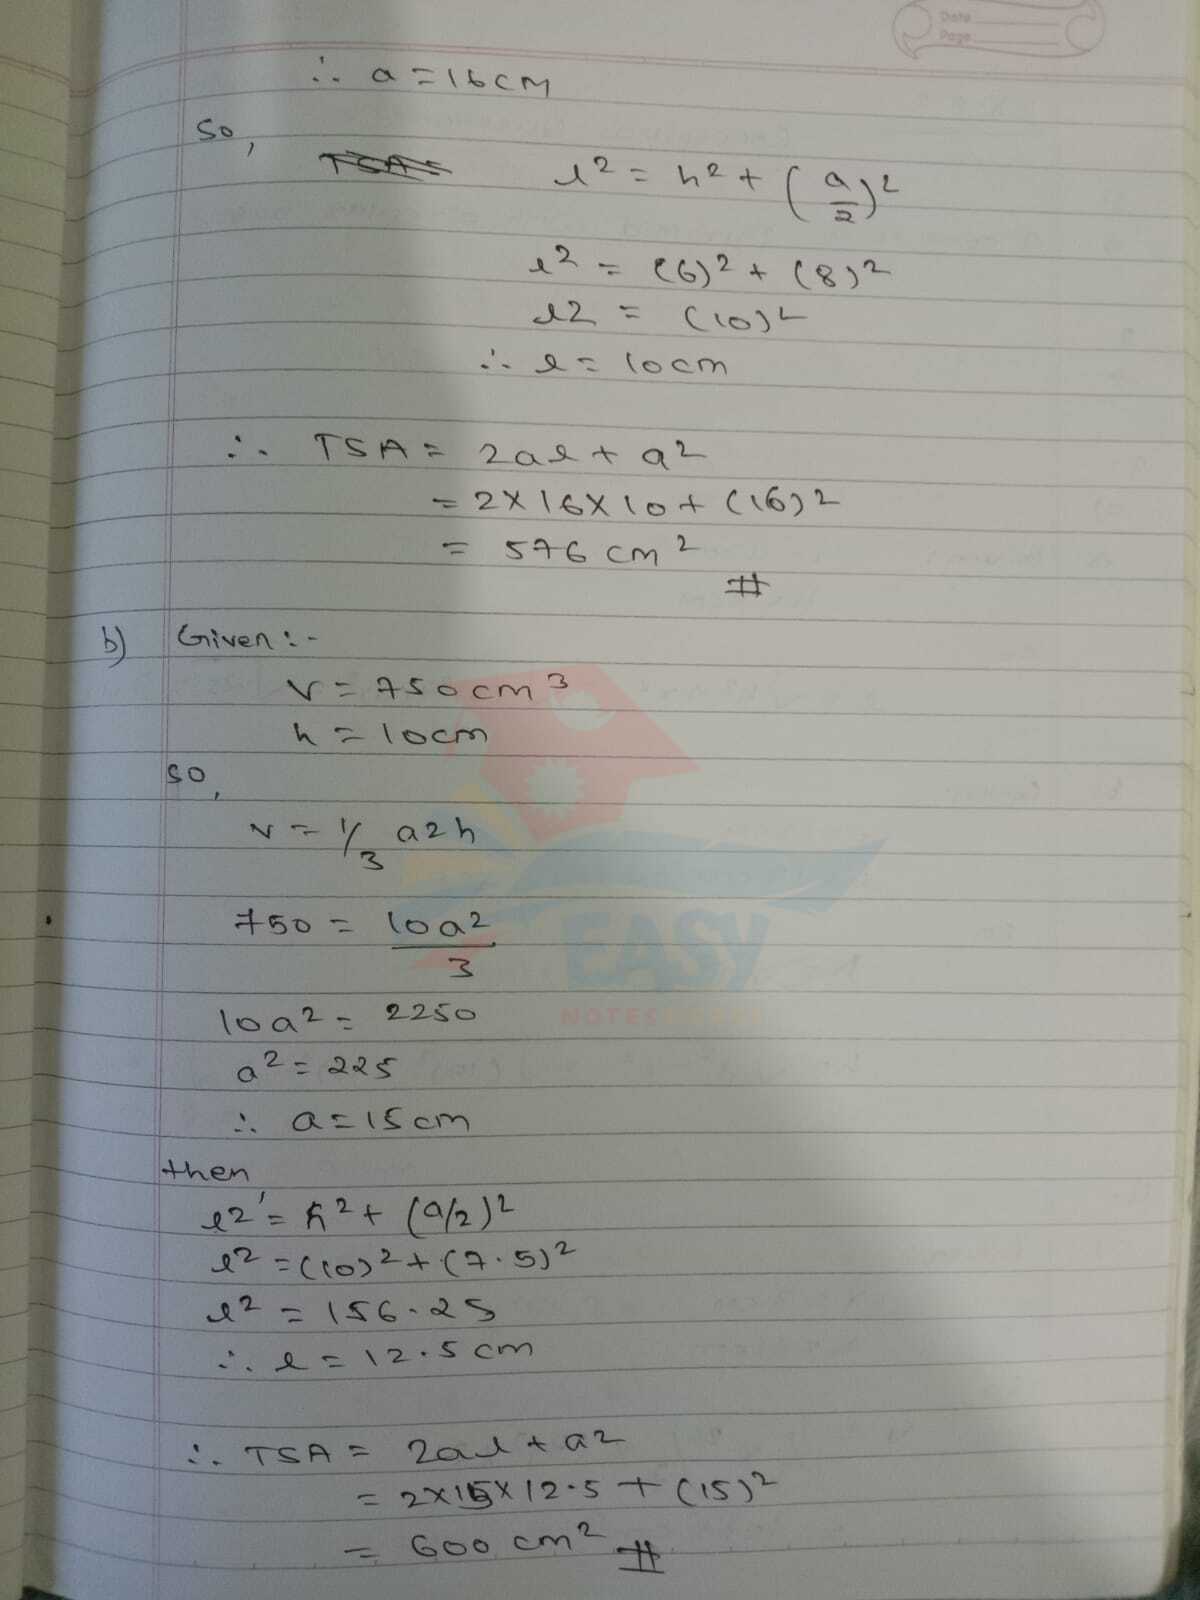 Date
Page
∴ a = 16 cm
So,
TSA =
l² = h² + (a/2)²
l² = (6)² + (8)²
l2 = (10)²
∴ l = 10cm
∴ TSA = 2al + a²
= 2 × 16 × 10 + (16)²
= 576 cm²
#
b) Given :-
V = 750 cm³
h = 10cm
so,
v = 1/3 a2h
750 = 10a²/3
10a² = 2250
a² = 225
∴ a = 15 cm
then,
l2 = h² + (a/2)²
l² = (10)² + (7.5)²
l² = 156.25
∴ l = 12.5 cm
EASY
NOTES
∴ TSA = 2al + a2
= 2×15×12.5 + (15)²
= 600 cm² #